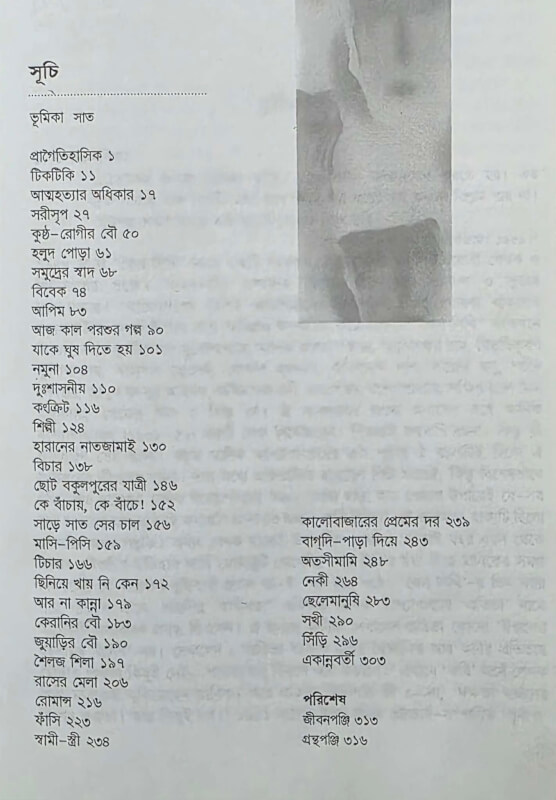 সূচি
ভূমিকা সাত
প্রাগৈতিহাসিক ১
টিকটিকি ১১
আত্মহত্যার অধিকার ১৭
সরীসৃপ ২৭
কুষ্ঠ-রোগীর বৌ ৫০
হলুদ পোড়া ৬১
সমুদ্রের স্বাদ ৬৮
বিবেক ৭৪
আপিম ৮৩
আজ কাল পরশুর গল্প ৯০
যাকে ঘুষ দিতে হয় ১০১
নমুনা ১০৪
দুঃশাসনীয় ১১০
কংক্রিট ১১৬
শিল্পী ১২৪
হারানের নাতজামাই ১৩০
বিচার ১৩৮
ছোট বকুলপুরের যাত্রী ১৪৬
কে বাঁচায়, কে বাঁচে! ১৫২
সাড়ে সাত সের চাল ১৫৬
মাসি-পিসি ১৫৯
টিচার ১৬৬
ছিনিয়ে খায় নি কেন ১৭২
আর না কান্না ১৭৯
কেরানির বৌ ১৮৩
জুয়াড়ির বৌ ১৯০
শৈলজ শিলা ১৯৭
রাসের মেলা ২০৬
রোমান্স ২১৬
ফাঁসি ২২৩
স্বামী-স্ত্রী ২৩৪
কালোবাজারের প্রেমের দর ২৩৯
বাগ্‌দি-পাড়া দিয়ে ২৪৩
অতসীমামি ২৪৮
নেকী ২৬৪
ছেলেমানুষি ২৮৩
সখী ২৯০
সিঁড়ি ২৯৬
একান্নবর্তী ৩০৩
পরিশেষ
জীবনপঞ্জি ৩১৩
গ্রন্থপঞ্জি ৩১৬